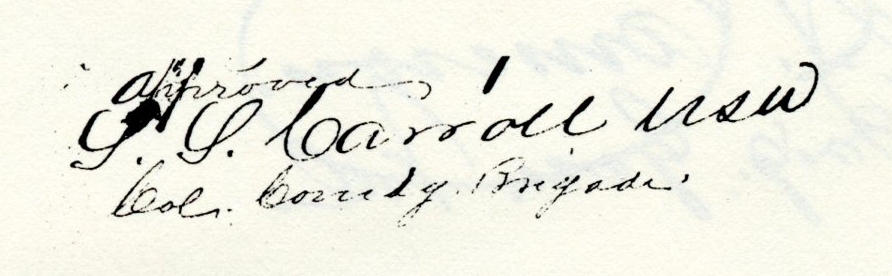 approved
S. S. Carroll
Col. Comdg. Brigade